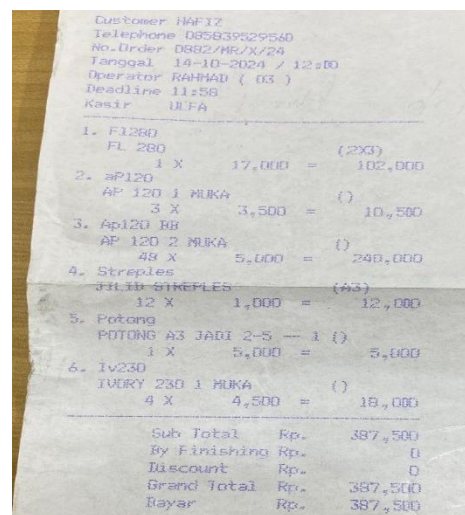 Customer HAFIZ
Telephone 085839529560
No.Order 0882/MR/X/24
Tanggal 14-10-2024 / 12:00
Operator RAHMAD ( 03 )
Deadline 11:58
Kasir ULFA
1. Fl280
FL 280 (2X3)
1 X 17,000 = 102,000
2. aP120
AP 120 1 MUKA ()
3 X 3,500 = 10,500
3. Ap120 BB
AP 120 2 MUKA ()
48 X 5,000 = 240,000
4. Streples
JILID STREPLES (A3)
12 X 1,000 = 12,000
5. Potong
POTONG A3 JADI 2-5 -- 1 ()
1 X 5,000 = 5,000
6. Iv230
IVORY 230 1 MUKA ()
4 X 4,500 = 18,000
Sub Total Rp. 387,500
By Finishing Rp. 0
Discount Rp. 0
Grand Total Rp. 387,500
Bayar Rp. 387,500